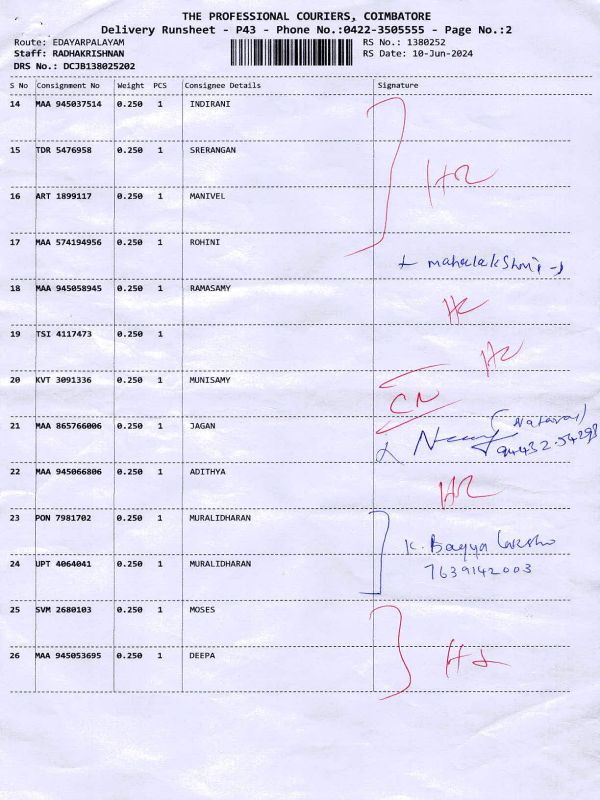 THE PROFESSIONAL COURIERS, COIMBATORE
Delivery Runsheet - P43 - Phone No.:0422-3505555 - Page No.:2
Route: EDAYARPALAYAM
RS No.: 1380252
Staff: RADHAKRISHNAN
RS Date: 10-Jun-2024
DRS No.: DCJB138025202
S No Consignment No Weight PCS Consignee Details Signature
14 MAA 945037514 0.250 1 INDIRANI
15 TDR 5476958 0.250 1 SRERANGAN
16 ART 1899117 0.250 1 MANIVEL
17 MAA 574194956 0.250 1 ROHINI
mahalakshmi
18 MAA 945058945 0.250 1 RAMASAMY
19 TSI 4117473 0.250 1
20 KVT 3091336 0.250 1 MUNISAMY
CN
21 MAA 865766006 0.250 1 JAGAN
94432-54293
22 MAA 945066806 0.250 1 ADITHYA
23 PON 7981702 0.250 1 MURALIDHARAN
K. Bagya
24 UPT 4064041 0.250 1 MURALIDHARAN
7639142003
25 SVM 2680103 0.250 1 MOSES
26 MAA 945053695 0.250 1 DEEPA